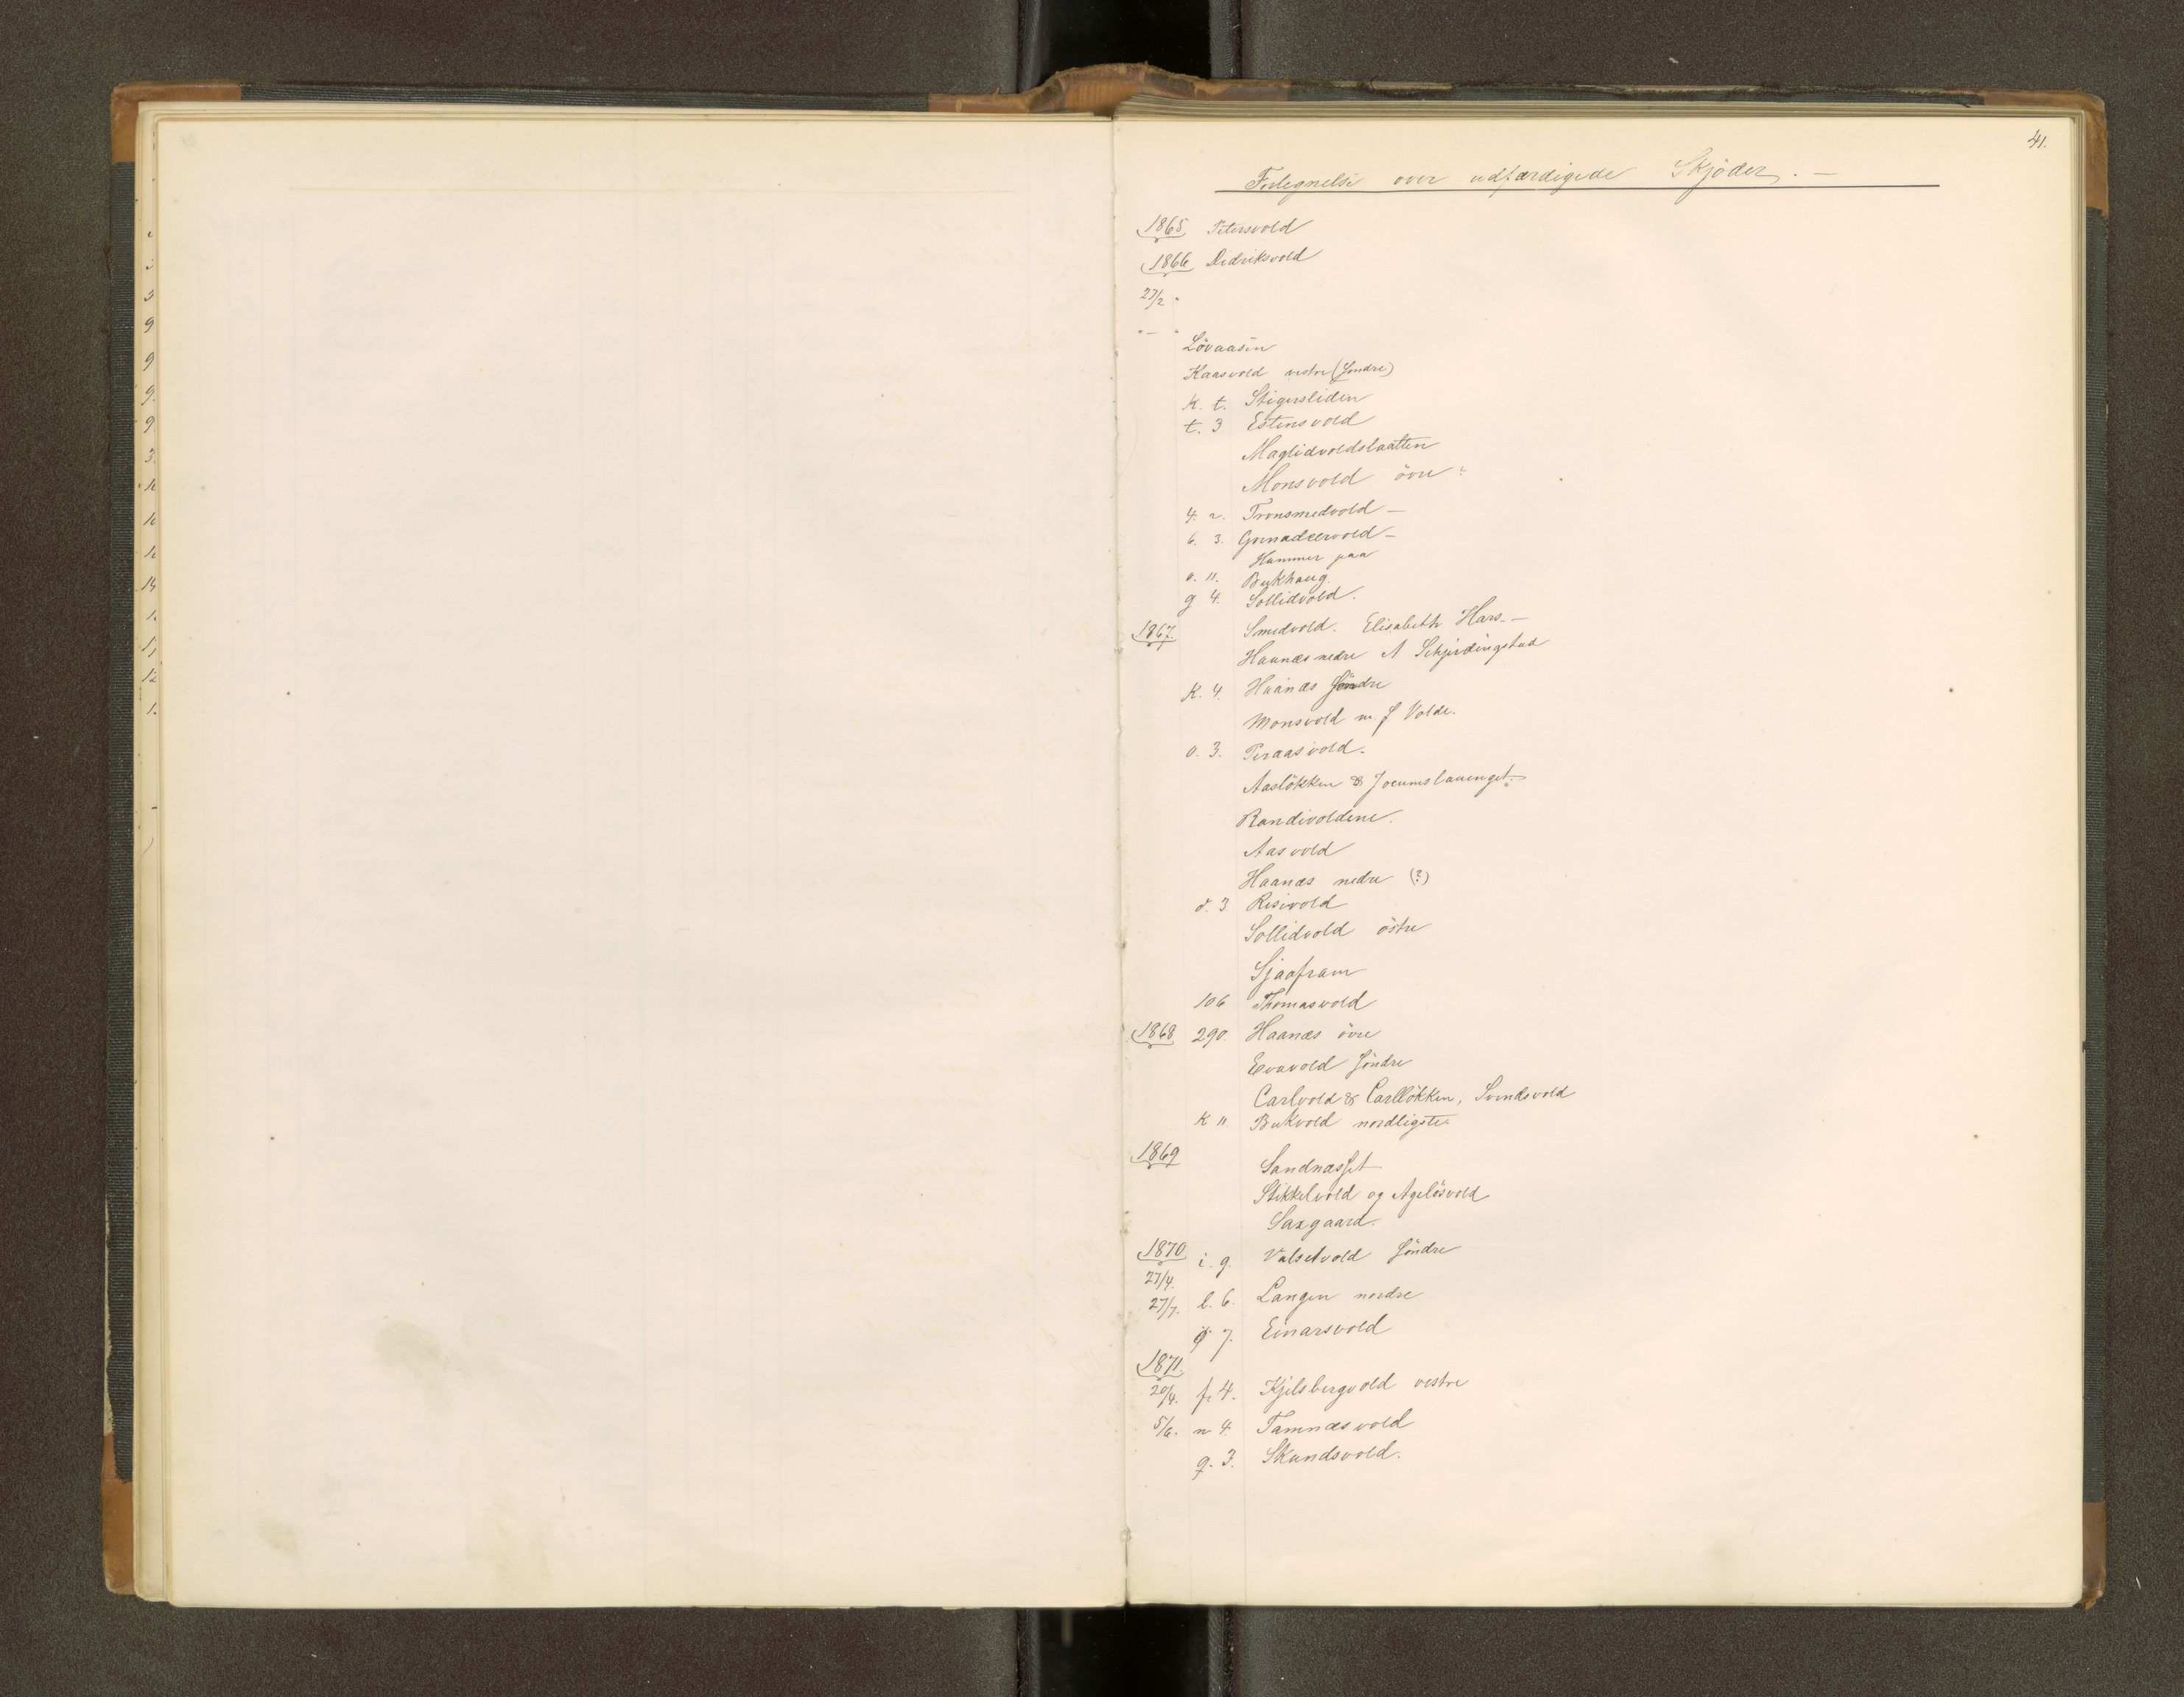 41.
Fortegnelse over udfærdigede Skjöder. —
1865 Petersvold
1866 Didriksvold
27/2 "
" — "
Lövaasen
Kaasvold vestre (söndre)
k. t. Stigersliden
t. 3 Estensvold
Maglidvoldslaatten
Monsvold övre ?
4. r. Tronsmedvold —
6. 3. Grenadeervold —
Hammer paa
o. 11. Bukhaug.
g 4. Sollidvold.
1867. Smedvold. Elisabeth Hars. —
Haanæs nedre A Schjerdingstad
K. 4. Haanæs söndre
Monsvold m. f Volde.
o. 3. Peraasvold.
Aaslökken & Jocumslauenget. —
Randivoldene.
Aasvold
Haanæs nedre (?)
d. 3. Risivold
Sollidvold östre
Sjaafram
106 Thomasvold
1868 290. Haanæs övre
Evavold söndre
Carlvold & Carllökken, Svendsvold
K 11 Bukvold nordligste.
1869 Sandnæsset
Stikkelvold og Agelösvold
Saxgaard.
1870 i. 9. Valsetvold söndre
27/4.
27/7. l. 6. Langen nordre
7. Einarsvold
1871.
20/4. f. 4. Kjelsbergvold vestre
5/6. n 4. Tamnæsvold
q. 3. Skundsvold.
3
9
9
9.
9
3.
1
1
1
14
1.
11
12
1.